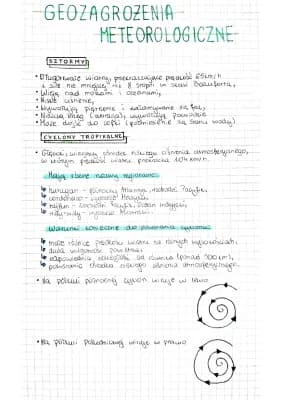 GEOZAGROŻENIA
METEOROLOGICZNE
SZTORMY
• Długotrwałe wiatry, przekraczające prędkość
o sile nie mniejszej niż 8 stopni w skali Beauforta,
• Wieją nad morzami i oceanami,
• Niskie ciśnienie,
• Wywołują piętrzenie i załamywanie się fal,
• wywołują powodzie
• Może dojść do cofki (podniesienie się stanu wody)
CYKLONY TROPIKALNE
• Głęboki, wirujący ośrodek niskiego ciśnienia atmosferycznego,
w którym prędkość wiatru przekracza km/h.
Mają różne nazwy regionalne:
huragan - północny Atlantyk, wschodni Pacyfik,
tajfun - zachodni Pacyfik, Ocean Indyjski,
Warunki konieczne do powstania cyklonu:
małe różnice prędkości wiatru na różnych wysokościach,
duża wilgotność powietrza,
odpowiednia odległość od równika (ponad 500 km),
powstanie ośrodka niskiego ciśnienia atmosferycznego.
• Na półkuli północnej cyklon wiruje w lewo
• Na półkuli południowej wiruje w prawo